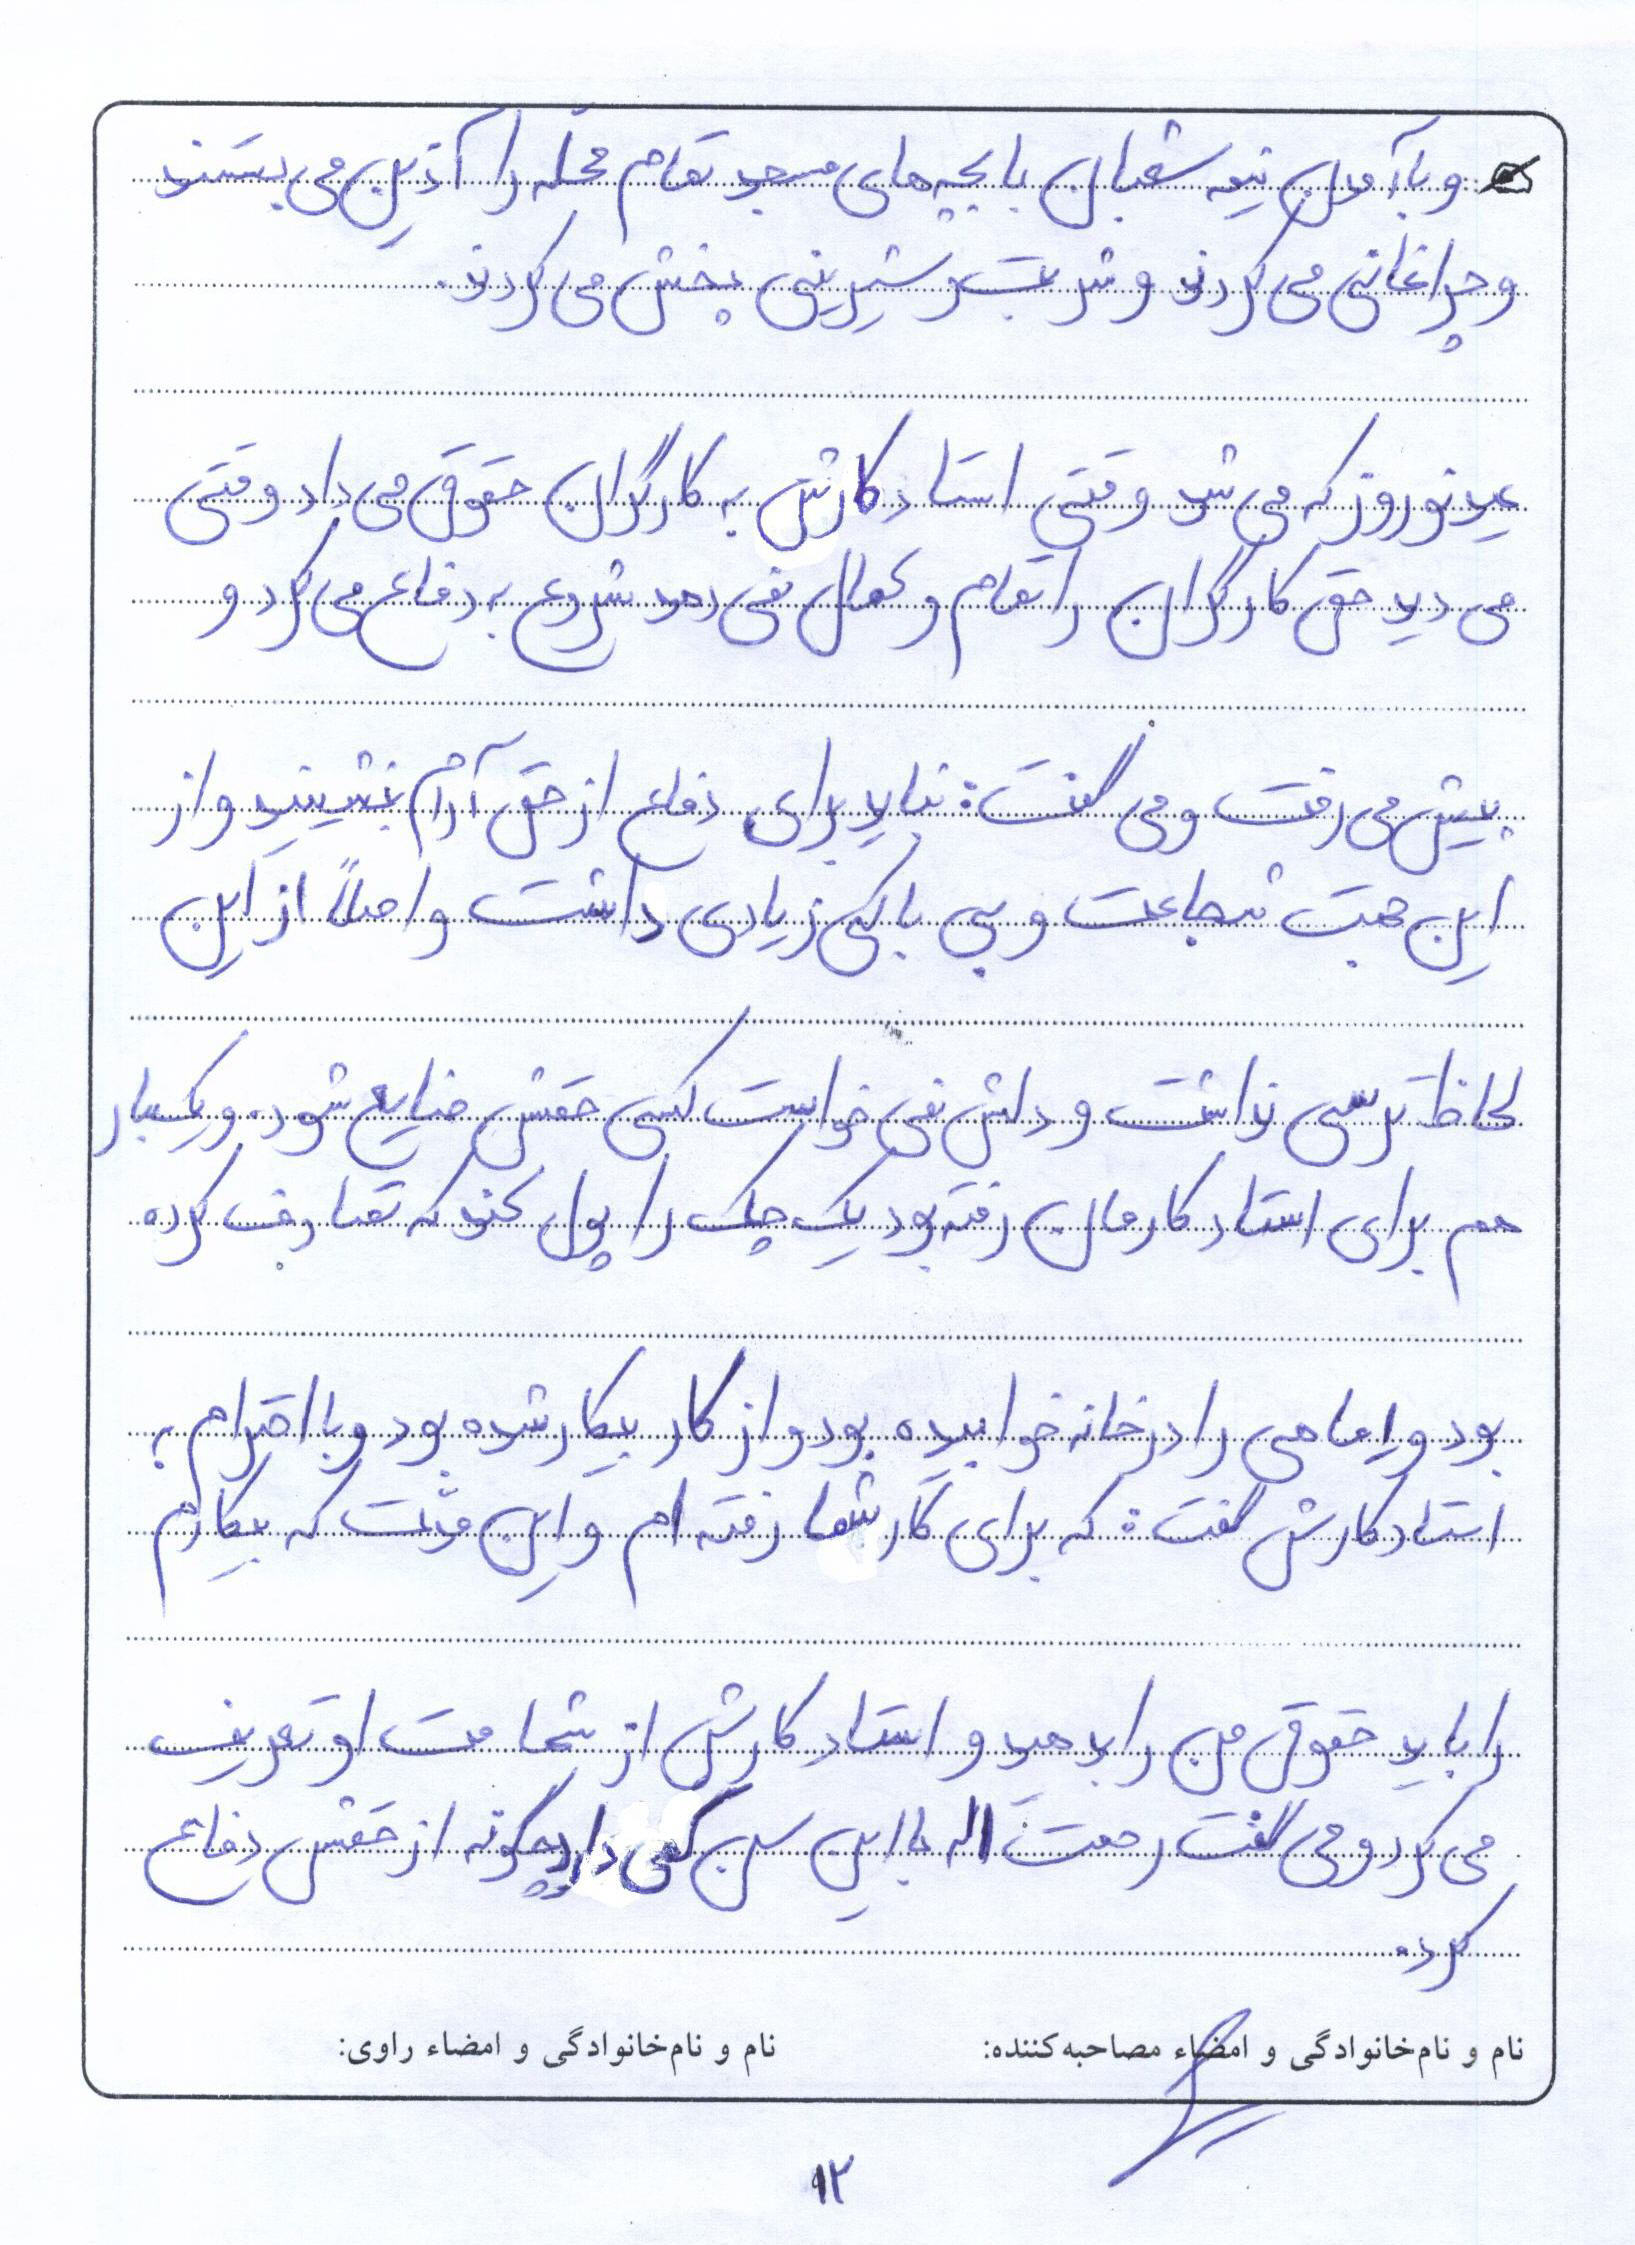 و با آمدن نیمه شعبان با بچه‌های مسجد تمام محلّه را آذین می‌بستند
و چراغانی می‌کردند و شربت و شیرینی پخش می‌کردند.
عید نوروز که می‌شد وقتی استاد کارش به کارگران حقوق می‌داد وقتی
می‌دید حق کارگران را تمام و کمال نمی‌دهد شروع به دفاع می‌کرد و
پیش می‌رفت و می‌گفت: نباید برای دفاع از حق آرام بنشینید و از
این جهت شجاعت و بی باکی زیادی داشت و اصلاً از این
لحاظ ترسی نداشت و دلش نمی‌خواست کسی حقش ضایع شود. و یک بار
هم برای استاد کارمان رفته بود یک چک را پول کند که تصادف کرده
بود و ایامی را در خانه خوابیده بود و از کار بیکار شده بود و با احترام به
استاد کارش گفت: که برای کار شما رفته ام و این مدّت که بیکارم
را باید حقوق من را بدهید و استاد کارش از شهامت او تعریف
می‌کرد و می‌گفت رحمت اله با این سن کمی دارد چگونه از حقش دفاع
کرد.
نام و نام‌خانوادگی و امضاء مصاحبه‌کننده: نام و نام‌خانوادگی و امضاء راوی:
۱۲